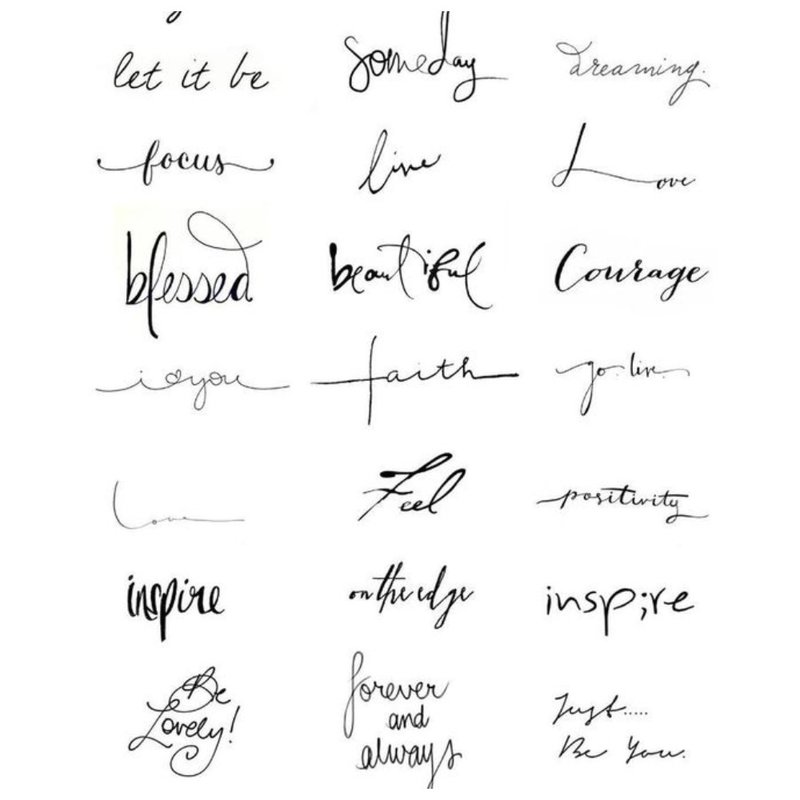 let it be
someday
dreaming.
focus
live
Love
blessed
beautiful
Courage
i you
faith
go. live.
Love
Feel
positivity
inspire
on the edge
inspire
Be
Lovely!
forever
and
always
Just.....
Be You.